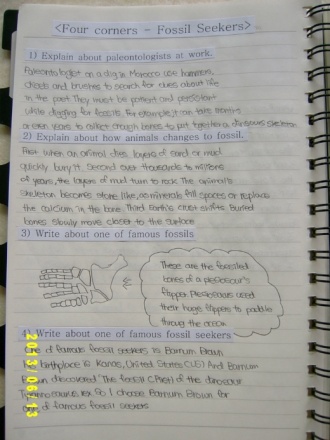 <Four corners - Fossil Seekers>
1) Explain about paleontologists at work.
Paleontologist on a dig in Morocco use hammers,
chisels and brushes to search for clues about life
in the past. They must be patient and persistent
while digging for fossils. For example, it can take months
or even years to collect enough bones to put together a dinosaurs skeleton
2) Explain about how animals changes to fossil.
First when an animal dies, layers of sand or mud
quickly bury it. Second over thousands to millions
of years, the layers of mud turn to rock. The animal's
skeleton becomes stone like, as minerals fill spaces or replace
the calcium in the bone. Third Earth's crust shifts. Buried
bones slowly move closer to the surface
3) Write about one of famous fossils
These are the fossilized
bones of a plesiosaur's
flipper. Plesiosaurs used
their huge flippers to paddle
through the ocean
4) Write about one of famous fossil seekers
One of famous fossil seekers is Barnum Brown
birthplace is Kansas, United States (US) And Barnum
Brown discovered The fossil of the dinosaur
Tyrannosaurus rex. So I choose Barnum Brown for
one of famous fossil seekers
2013/06/13